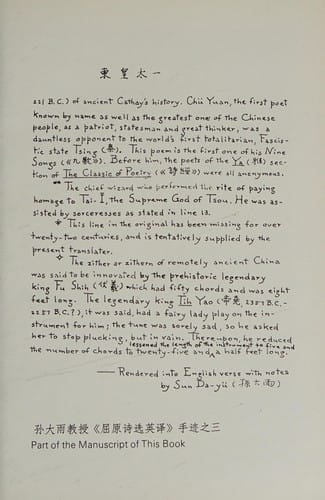 東皇太一
221 B.C.) of ancient Cathay's history. Chü Yuan, the first poet
known by name as well as the greatest one of the Chinese
people, as a patriot, statesman and great thinker, was a
dauntless opponent to the world's first totalitarian, Fascis-
tic state Tsing (秦). This poem is the first one of his Nine
Songs (《九歌》). Before him, the poets of the Ya (雅) sec-
tion of The Classic of Poetry (《詩經》) were all anonymous.
The chief wizard who performed the rite of paying
homage to Tai-Ĭ, the Supreme God of Tsou. He was as-
sisted by sorceresses as stated in line 13.
This line in the original has been missing for over
twenty-two centuries, and is tentatively supplied by the
present translater.
The zither or zithern of remotely ancient China
was said to be innovated by the prehistoric legendary
king Fu Shih (伏羲) which had fifty chords and was eight
feet long. The legendary king Tih Yao (帝堯, 2357 B.C.-
2257 B.C.?), it was said, had a fairy lady play on the in-
strument for him; the tune was sorely sad, so he asked
her to stop plucking, but in vain. Thereupon, he reduced
lessened the length of the instrument to five and
the number of chords to twenty-five and a half feet long.
—— Rendered into English verse with notes
by Sun Da-yü (孫大雨)
孙大雨教授《屈原诗选英译》手迹之三
Part of the Manuscript of This Book